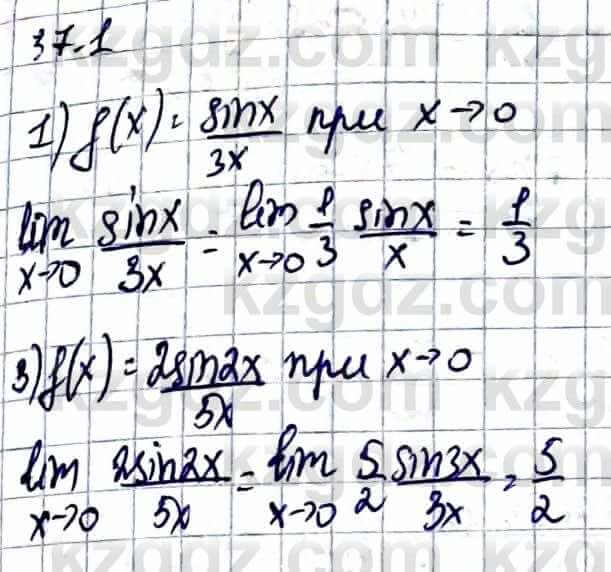 37.1
1) f(x) = sinx/3x при x→0
lim x→0 sinx/3x = lim x→0 1/3 sinx/x = 1/3
3) f(x) = 2sin2x/5x при x→0
lim x→0 2sin2x/5x = lim x→0 5/2 sin3x/3x = 5/2
kzgdz.com